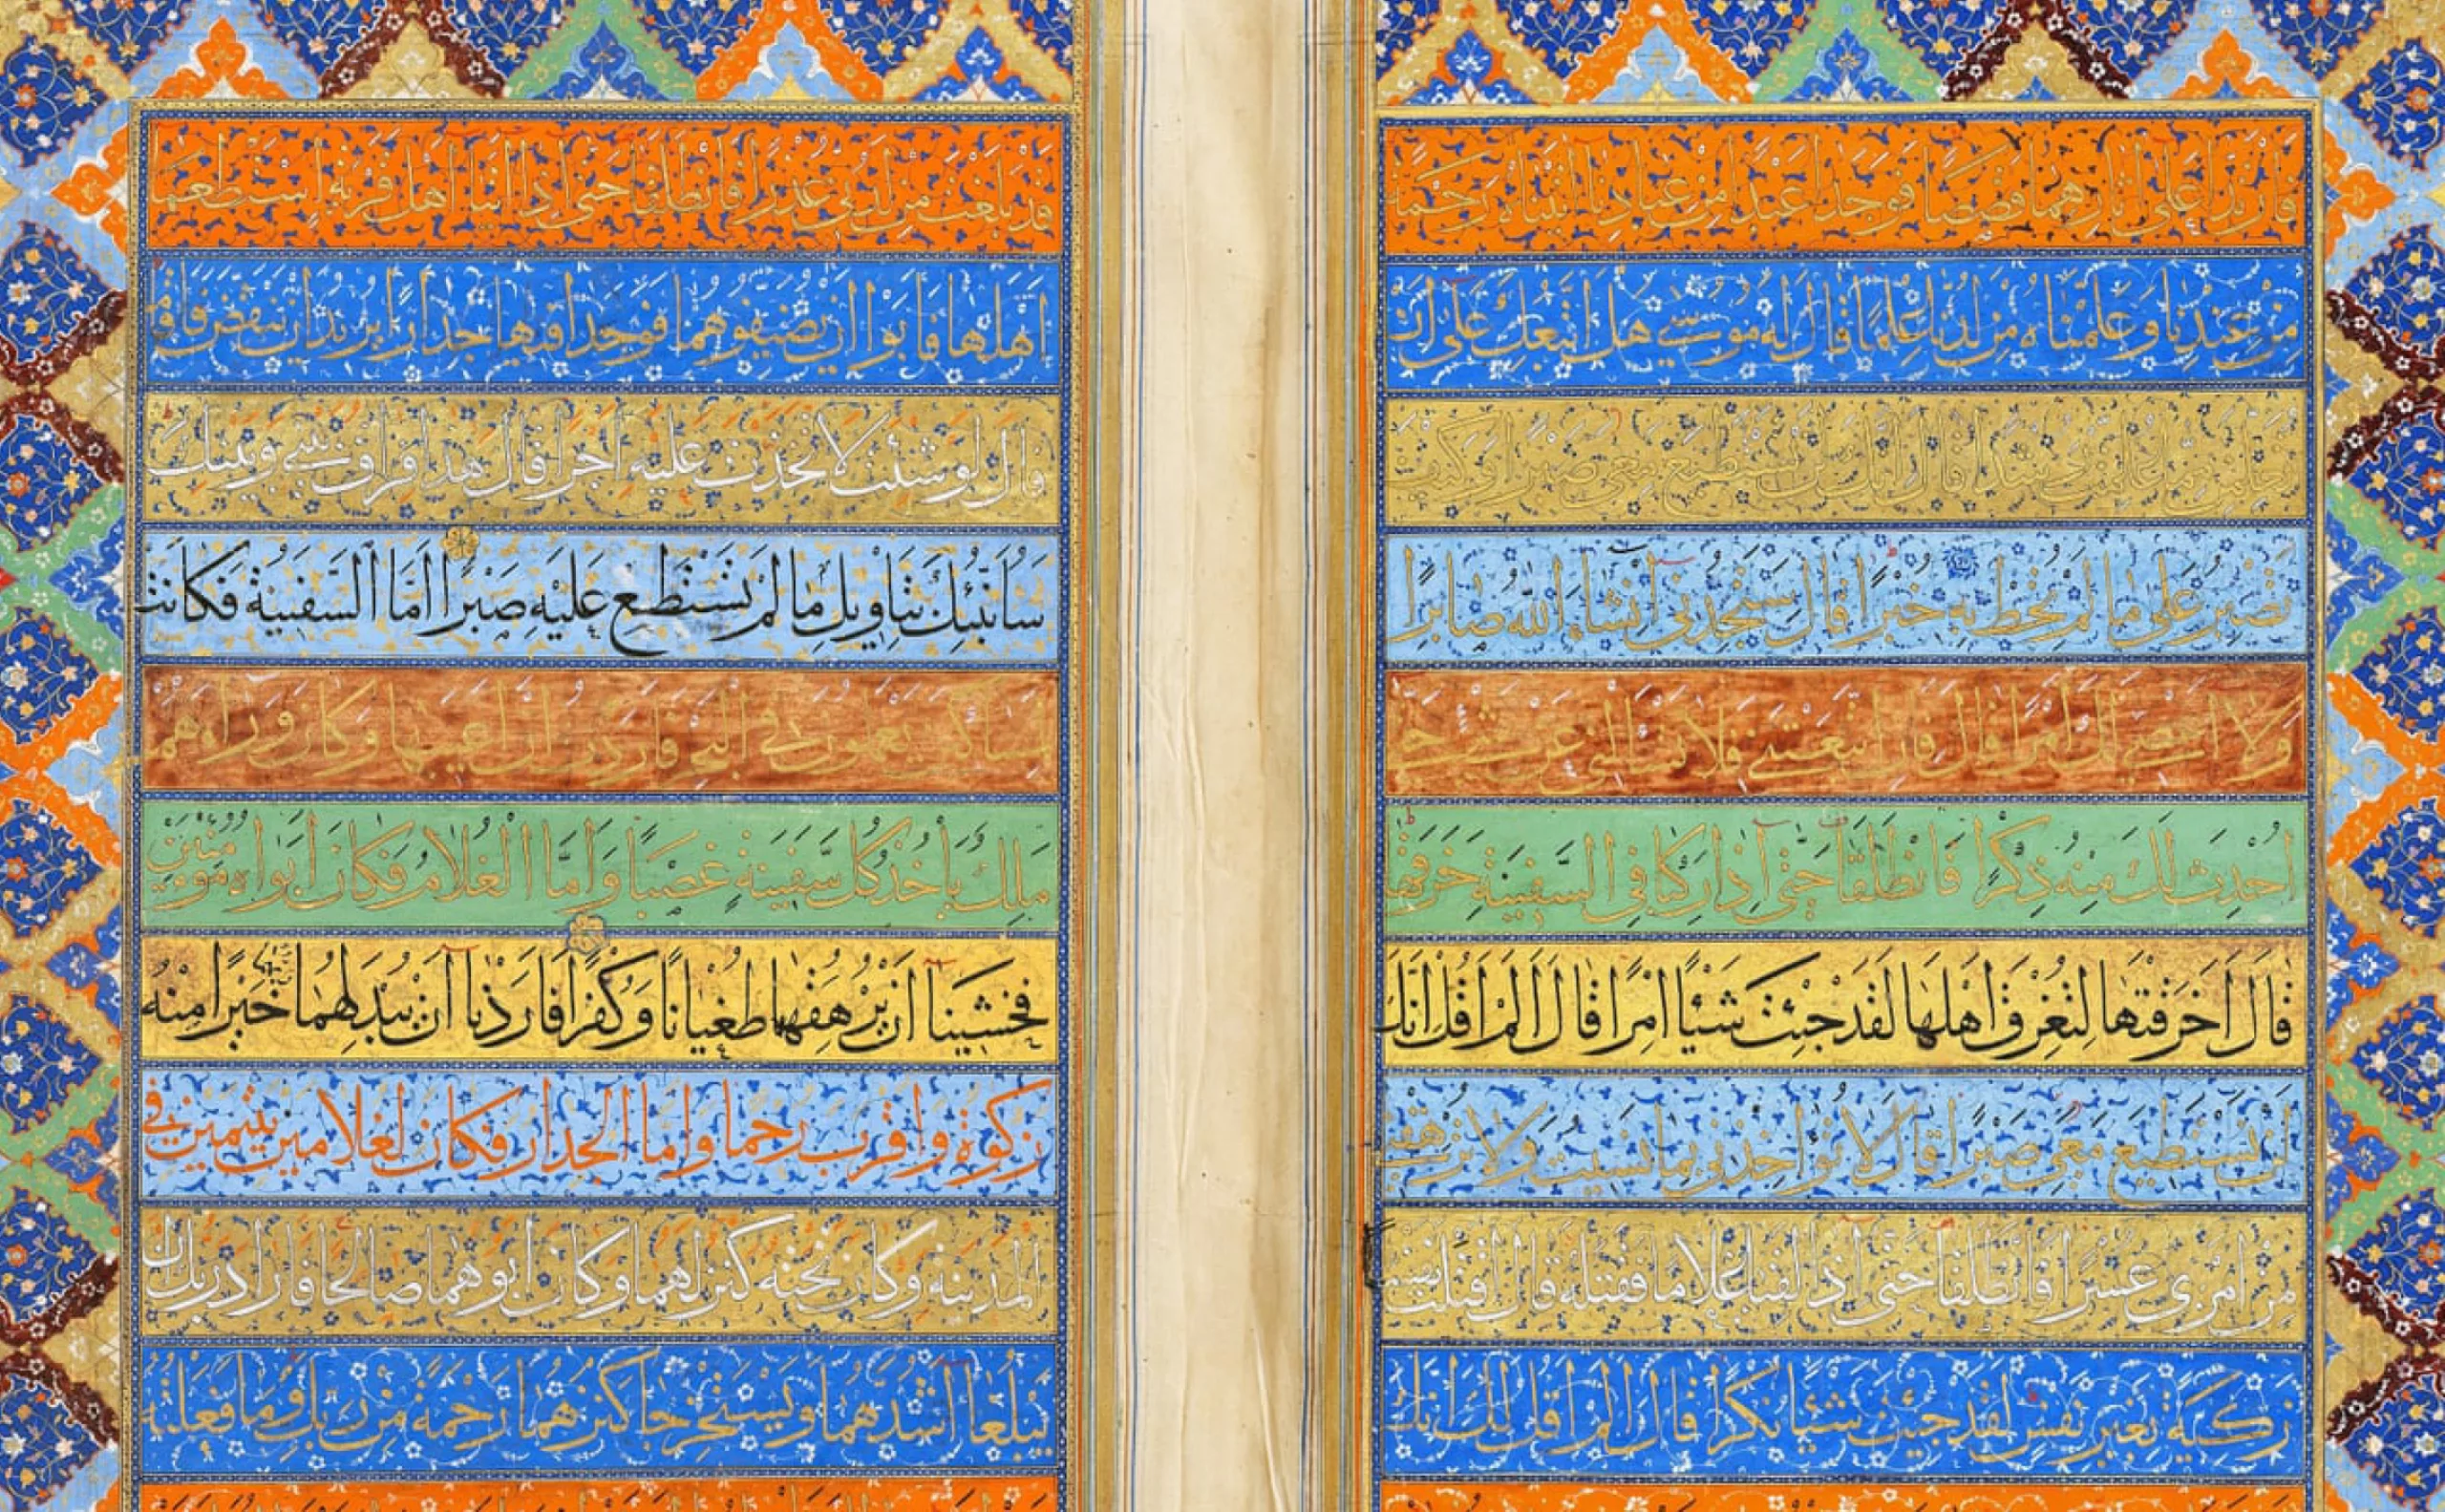 فارتدا علی اثارهما قصصا فوجدا عبدا من عبادنا اتیناه رحمة
مِنْ عِنْدِنا وَعَلَّمْناه مِنْ لَدُنّا عِلْمًا قال له موسی هل اتبعك علی ان
تعلمن مما علمت رشدا قال انك لن تستطیع معی صبرا وکیف
تَصْبِرُ عَلی ما لَمْ تُحِطْ بِه خُبْرًا قالَ سَتَجِدُنی اِنْشاءَ اللّه صابِرًا
ولا اعصی لك امرا قال فان اتبعتنی فلا تسالنی عن شیء حتی
اُحْدِثَ لَكَ مِنه ذِکْرًا فَانْطَلَقا حَتّی اِذا رَکِبا فِی السَّفینَةِ خَرَقَها
قالَ اَخَرَقْتَها لِتُغْرِقَ اَهْلَها لَقَدْ جِئْتَ شَیْئًا اِمْرًا قالَ اَلَمْ اَقُلْ اِنَّكَ
لَنْ تَسْتَطیعَ مَعِیَ صَبْرًا قالَ لا تُؤاخِذْنی بِما نَسیتُ وَلا تُرْهِقْنی
من امری عسرا فانطلقا حتی اذا لقیا غلاما فقتله قال اقتلت نفسا
زَکِیَّةً بِغَیْرِ نَفْسٍ لَقَدْ جِئْتَ شَیْئًا نُکْرًا قالَ اَلَمْ اَقُلْ لَكَ اِنَّكَ
قد بلغت من لدنی عذرا فانطلقا حتی اذا اتیا اهل قریة استطعما
اَهْلَها فَاَبَوْا اَنْ یُضَیِّفُوهُما فَوَجَدا فیها جِدارًا یُریدُ اَنْ یَنْقَضَّ فَاَقامَه
قال لو شئت لاتخذت علیه اجرا قال هذا فراق بینی وبینك
سَاُنَبِّئُكَ بِتَاْویلِ ما لَمْ تَسْتَطِعْ عَلَیْهِ صَبْرًا اَمَّا السَّفینَةُ فَکانَتْ
لمساکین یعملون فی البحر فاردت ان اعیبها وکان وراءهم
مَلِكٌ یَاْخُذُ کُلَّ سَفینَةٍ غَصْبًا وَاَمَّا الْغُلامُ فَکانَ اَبَواه مُؤْمِنَیْنِ
فَخَشینا اَنْ یُرْهِقَهُما طُغْیانًا وَکُفْرًا فَاَرَدْنا اَنْ یُبْدِلَهُما خَیْرًا مِنْهُ
زکوة واقرب رحما واما الجدار فکان لغلامین یتیمین فی
المدینة وکان تحته کنز لهما وکان ابوهما صالحا فاراد ربك ان
یَبْلُغا اَشُدَّهُما وَیَسْتَخْرِجا کَنْزَهُما رَحْمَةً مِنْ رَبِّكَ وَما فَعَلْتُهُ